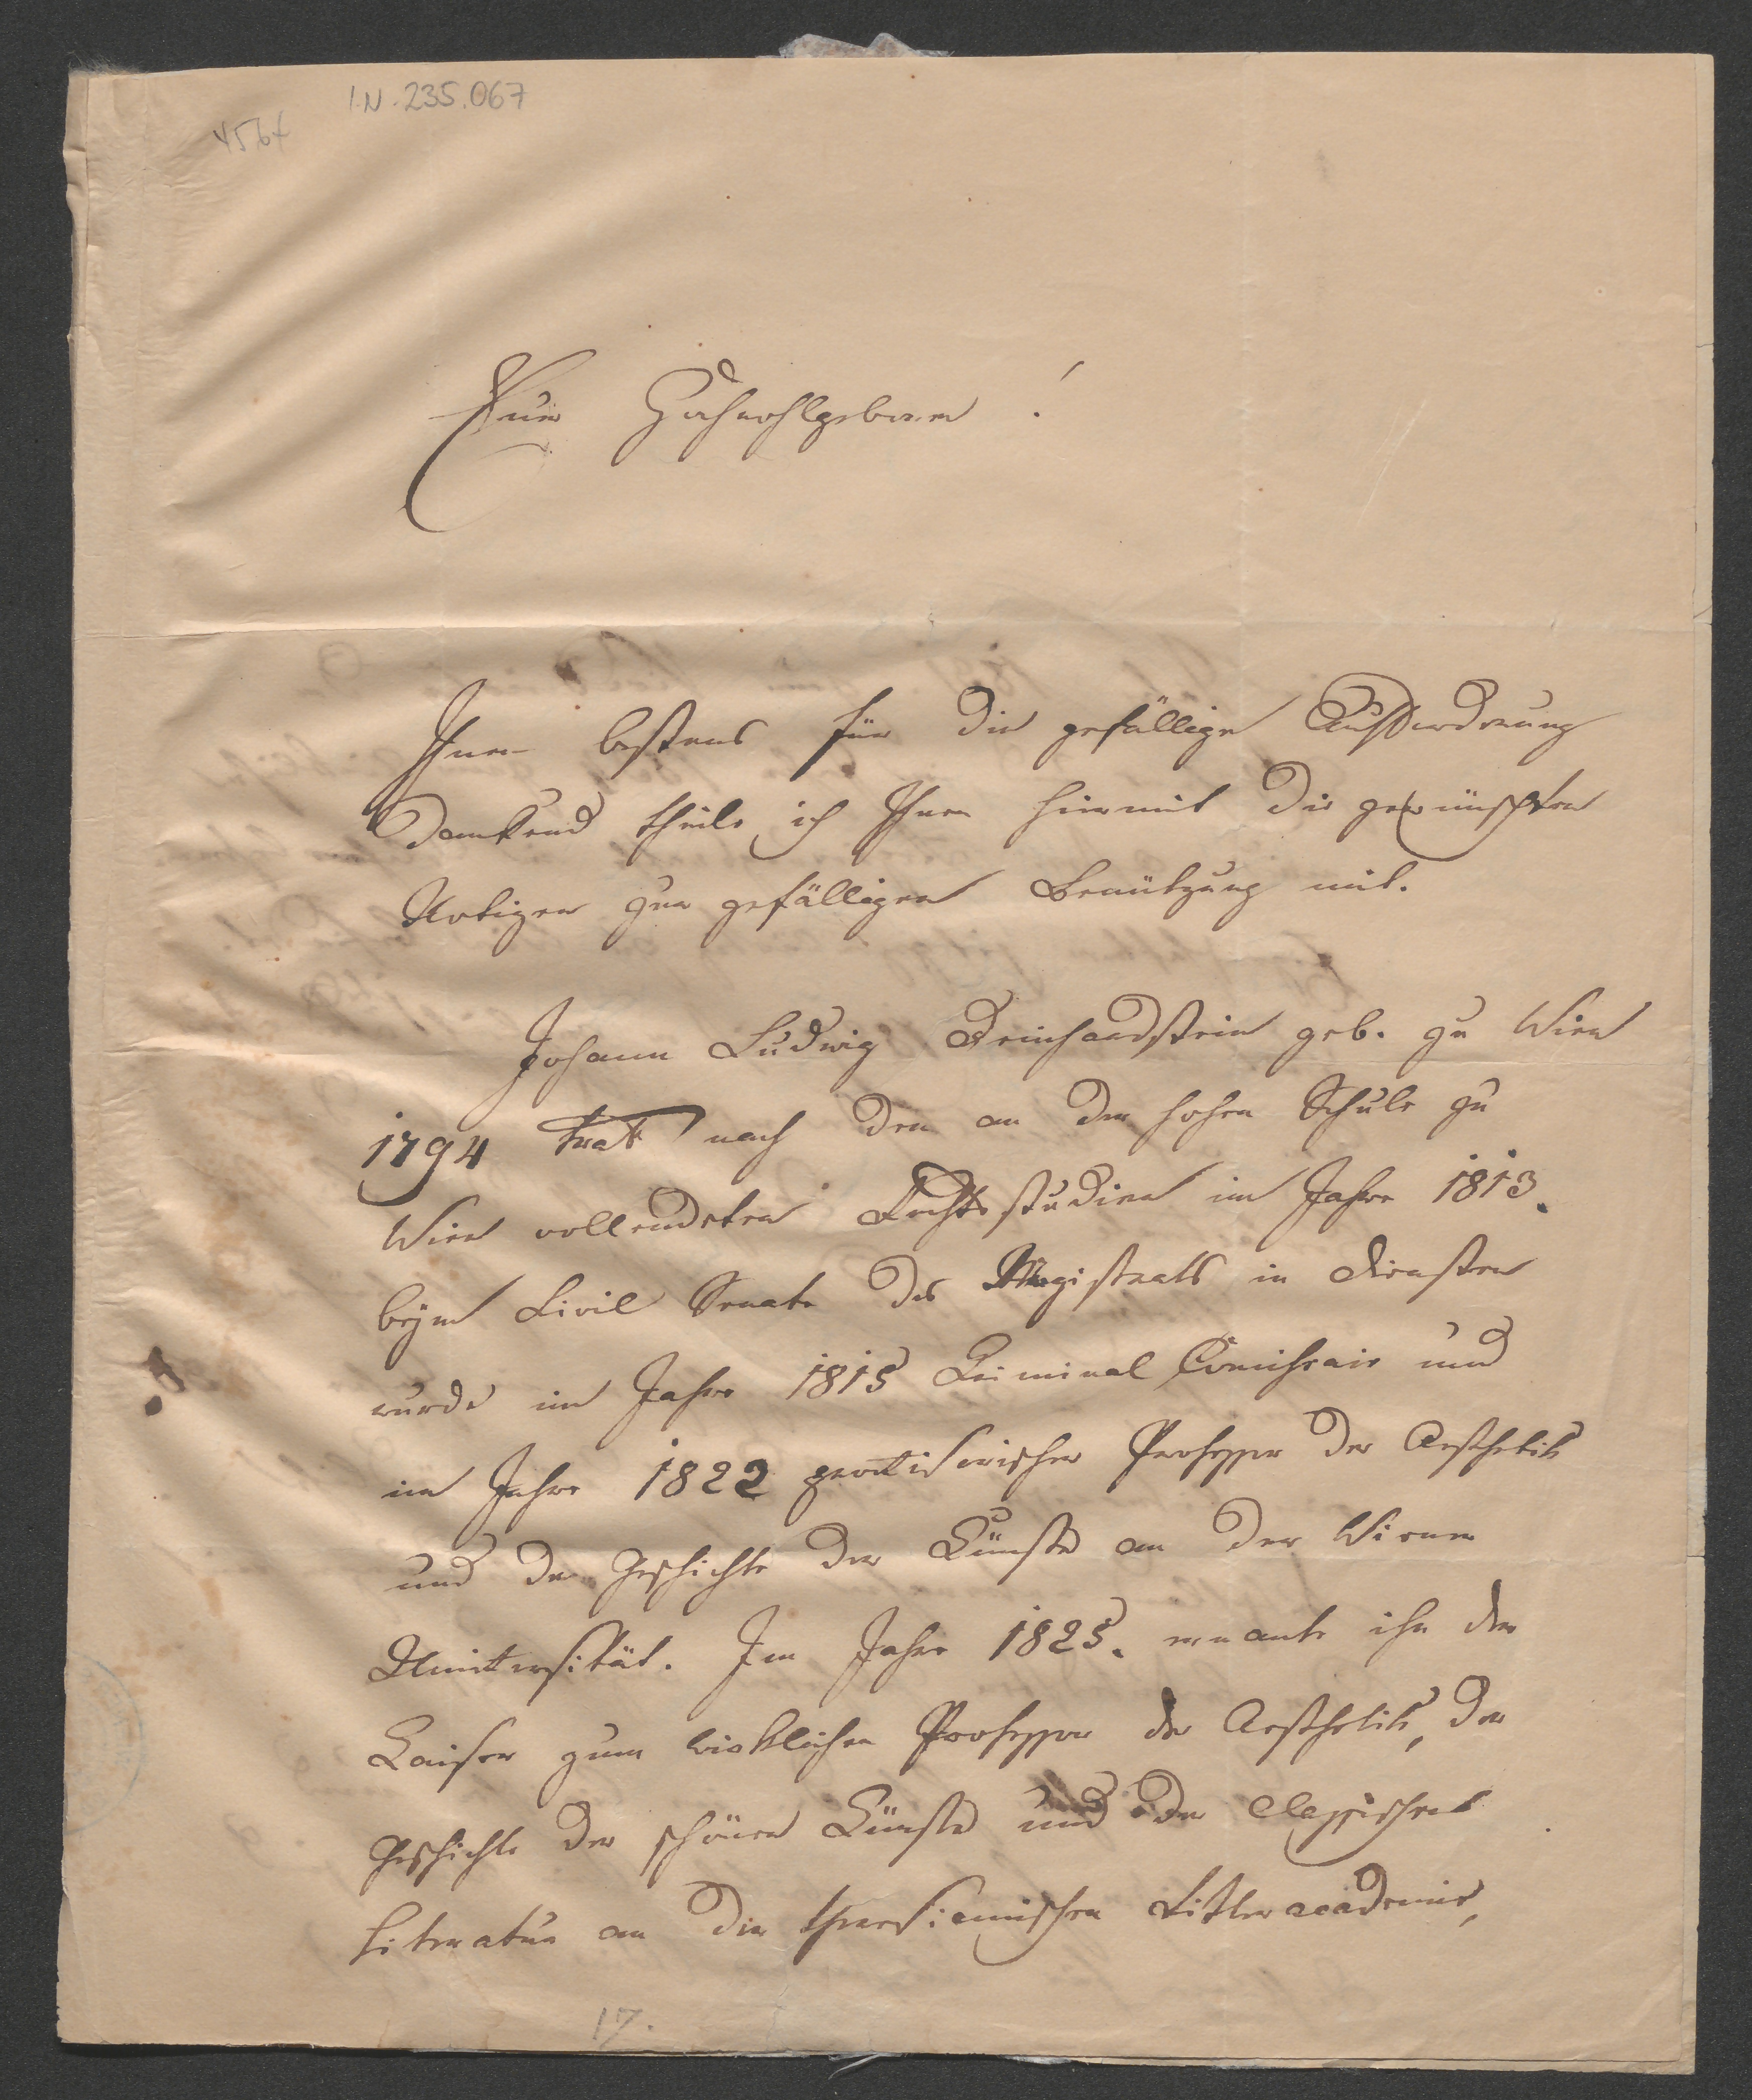 I.N. 235.067
4564
Euer Hochwohlgeboren!
Ihnen bestens für die gefällige Aufforderung
dankend theile ich Ihnen hiermit die gewünschten
Notizen zur gefälligen Benützung mit.
Johann Ludwig Deinhardstein geb. zu Wien
1794 trat nach den an der hohen Schule zu
Wien vollendeten Rechtsstudien im Jahre 1813.
beym Civil Senate des Magistrats in Diensten
wurde im Jahre 1815 Criminal Commissair und
im Jahre 1822 provisorischer Professor der Aesthetik
und der Geschichte der Künste an der Wiener
Universität. Im Jahre 1825. ernannte ihn der
Kaiser zum wirklichen Professor der Aesthetik, der
Geschichte der schönen Künste und der classischen
Literatur an der theresianischen Ritteracademie,
17.